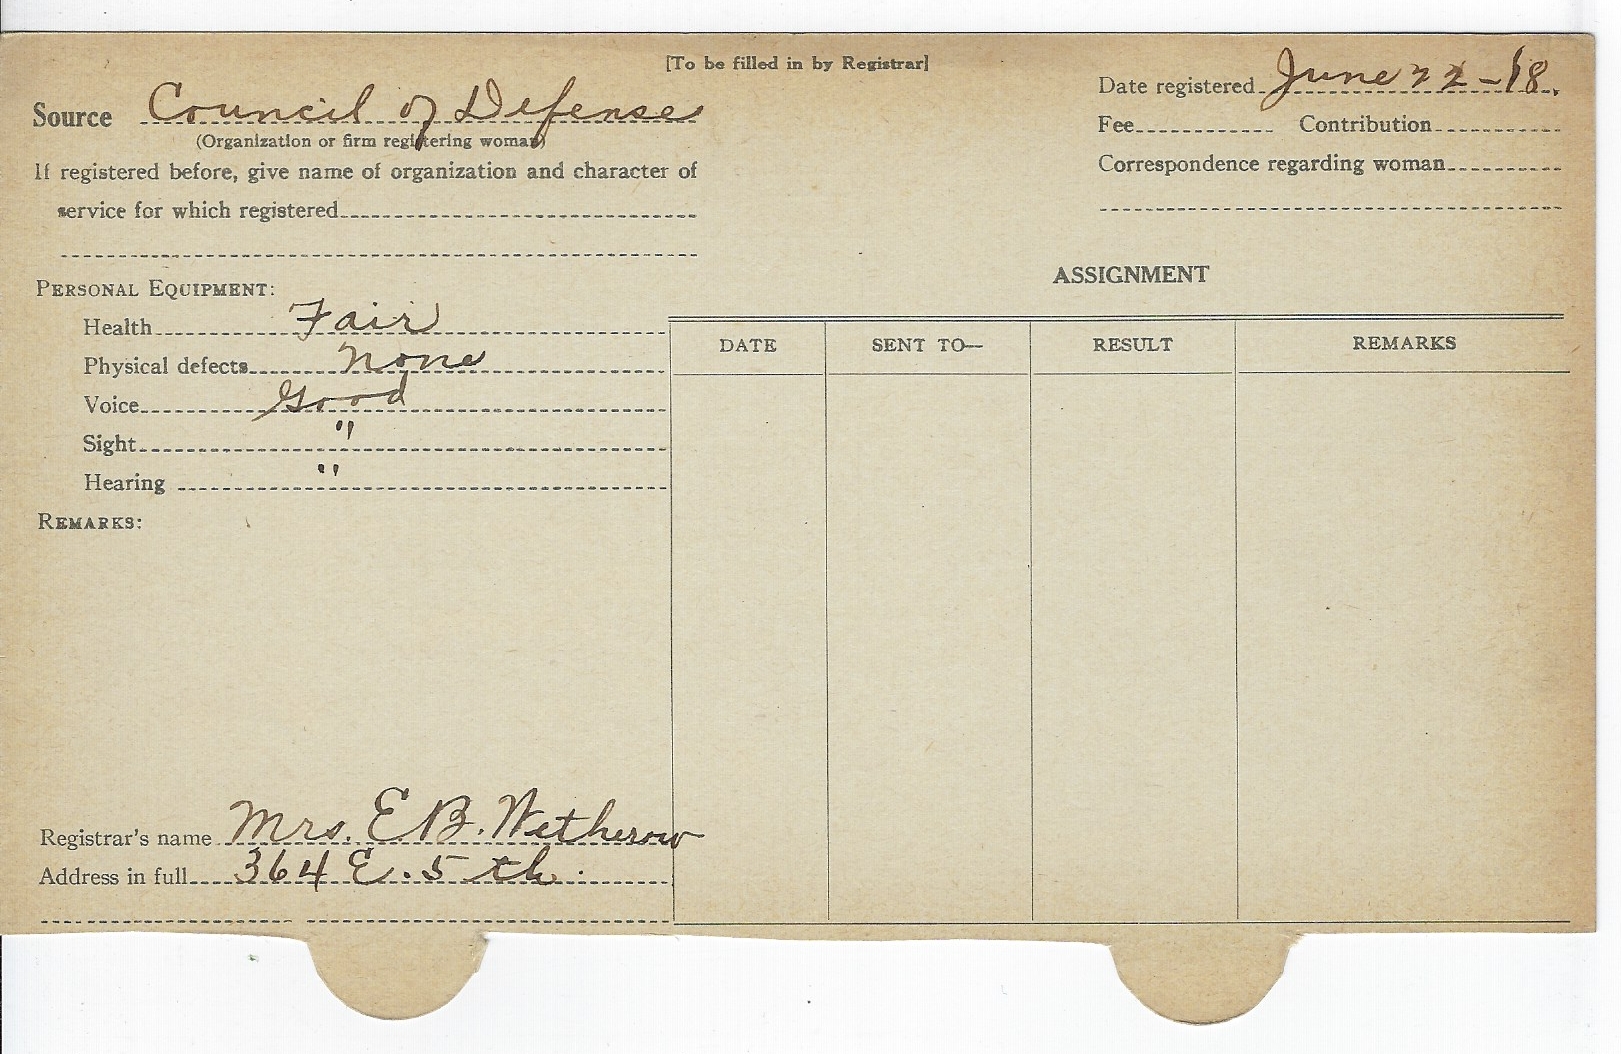 [To be filled in by Registrar]
Source Council of Defense
(Organization or firm registering woman)
If registered before, give name of organization and character of
service for which registered
Date registered June 22-18.
Fee Contribution
Correspondence regarding woman
PERSONAL EQUIPMENT:
Health Fair
Physical defects None
Voice Good
Sight "
Hearing "
REMARKS:
ASSIGNMENT
DATE SENT TO— RESULT REMARKS
Registrar's name Mrs. E B. Wetherow
Address in full 364 E. 5 th.